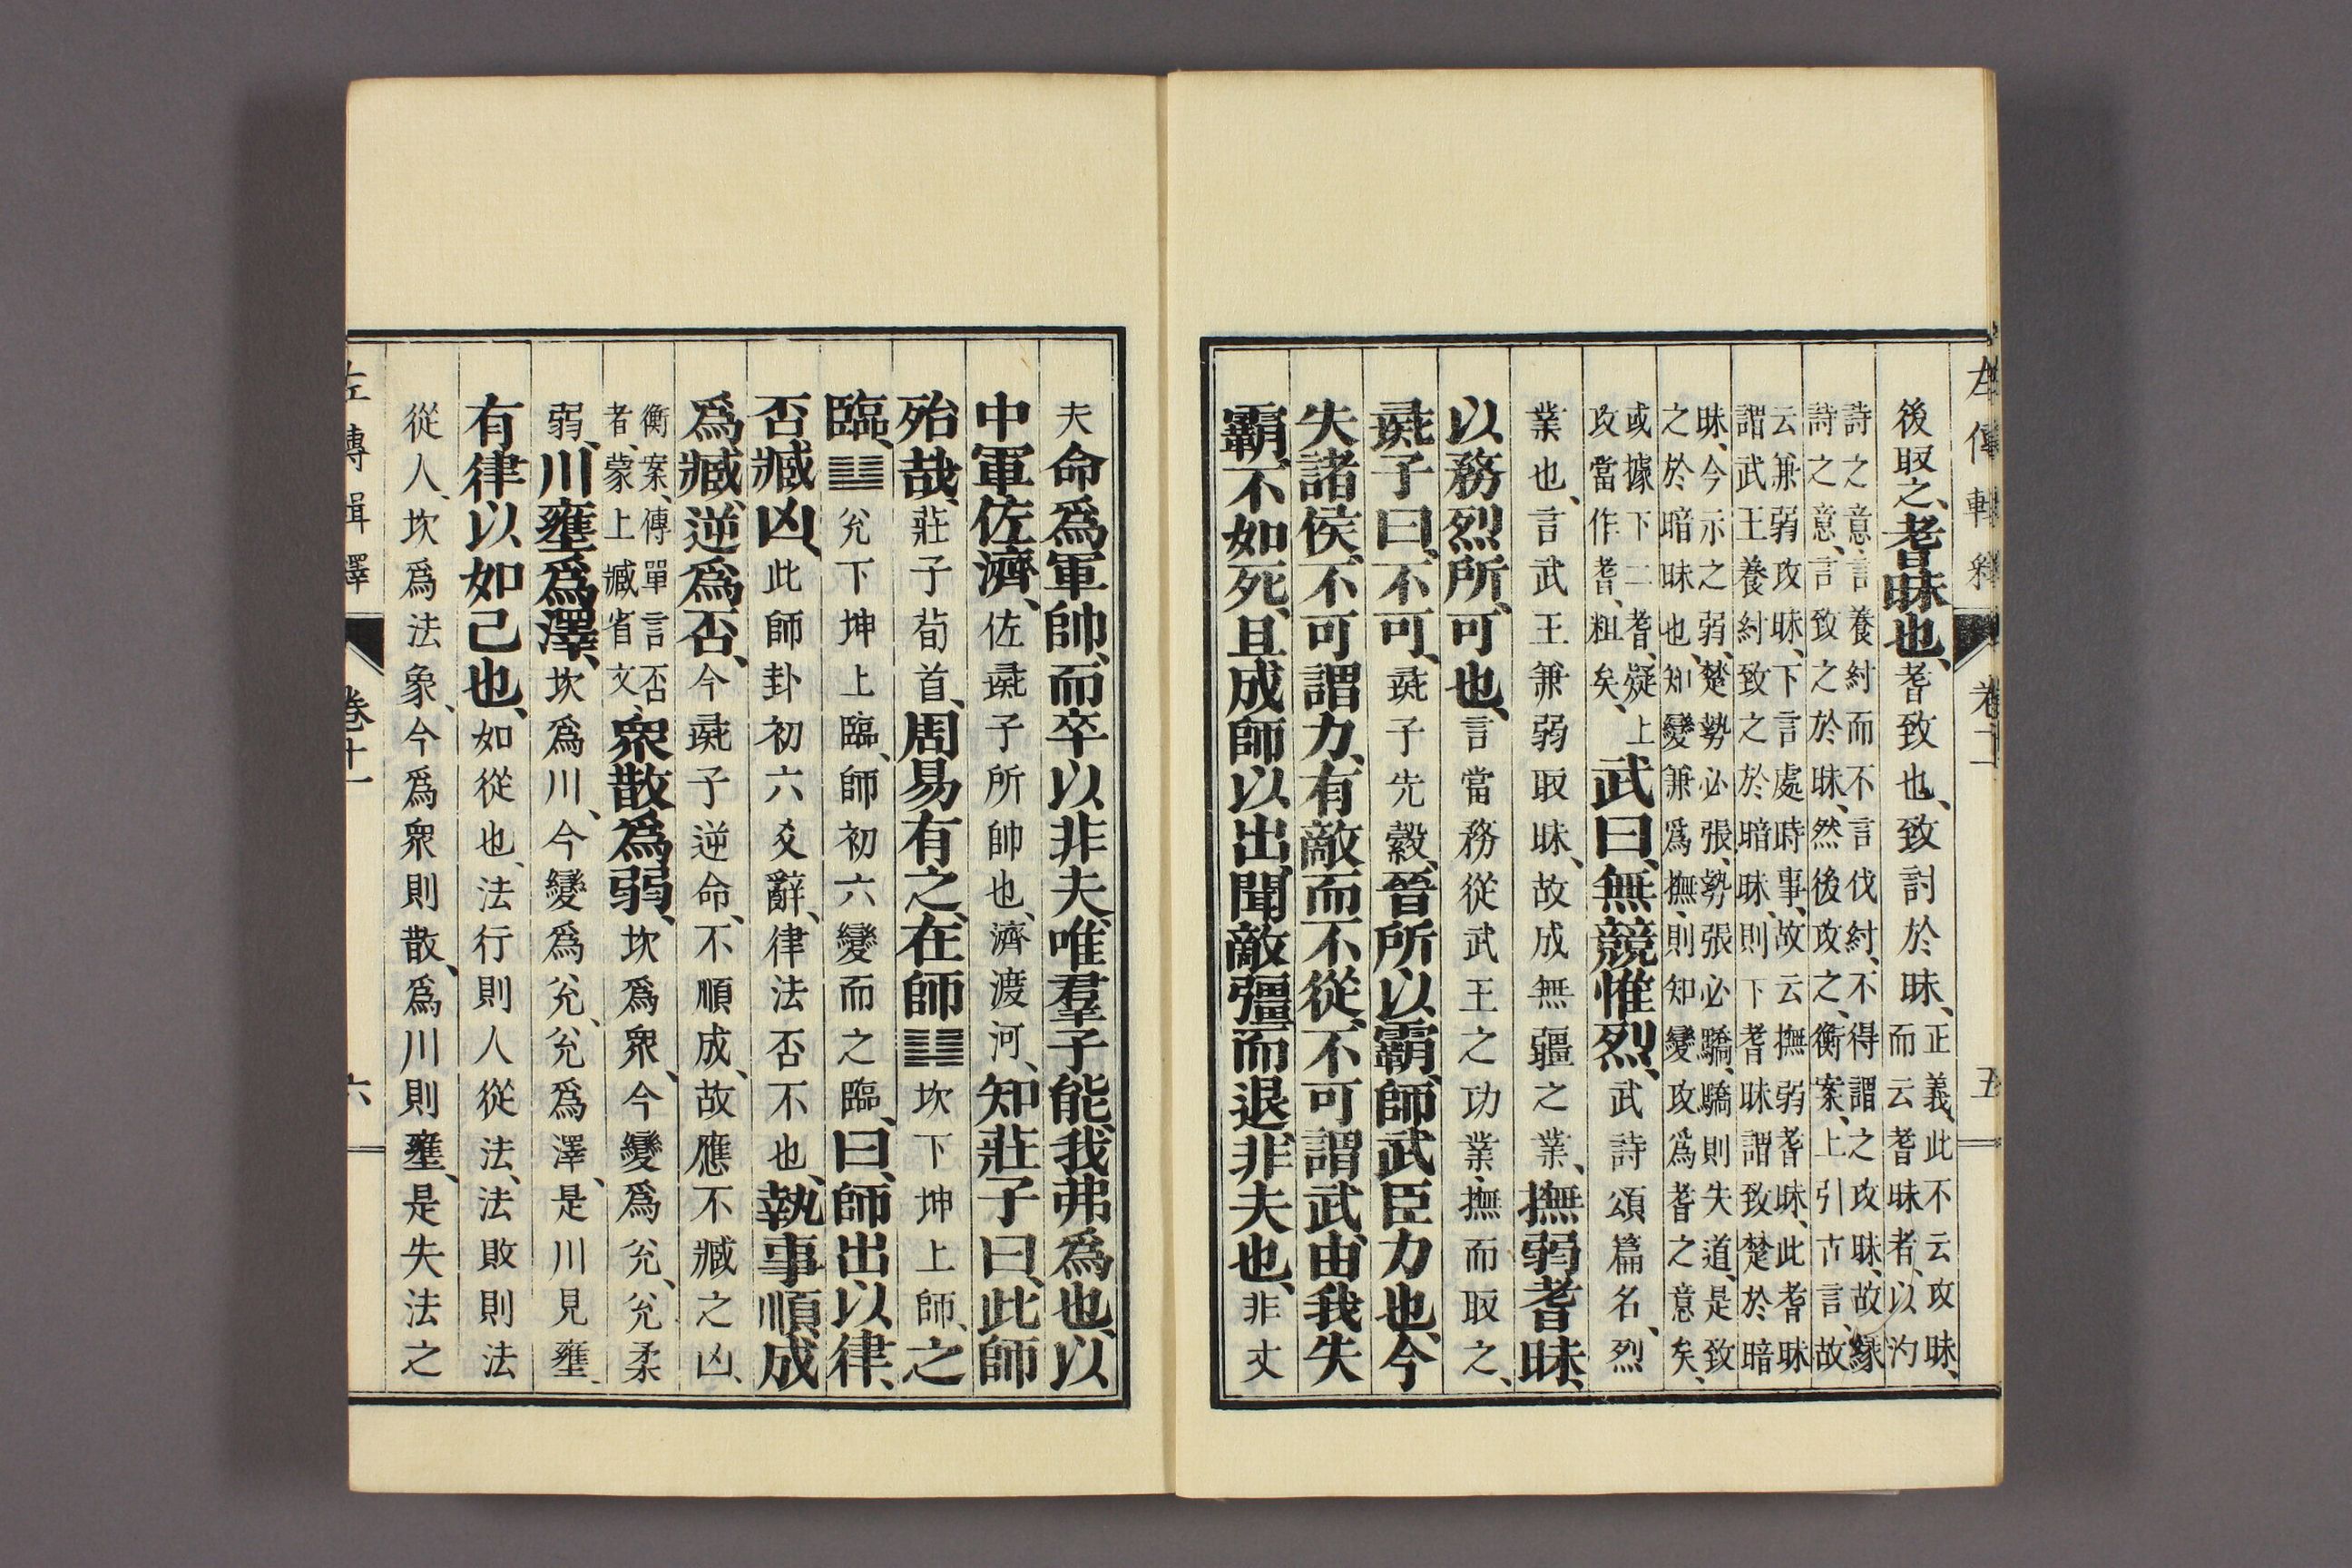 左傳輯釋 卷十一 五
後取之、耆昧也、耆致也、致討於昧、
正義、此不云攻昧、
而云耆昧者、以汋
詩之意、言養紂而不言伐紂、不得謂之攻昧、故緣
詩之意、言致之於昧、然後攻之、衡案、上引古言、故
云兼弱攻昧、下言處時事、故云撫弱耆昧、此耆昧
謂武王養紂致之於暗昧、則下耆昧謂致楚於暗
昧、今示之弱、楚勢必張、勢張必驕、驕則失道、是致
之於暗昧也、知變兼爲撫、則知變攻爲耆之意矣、
或據下二耆、疑上
攻當作耆、粗矣、
武曰、無競惟烈、武詩頌篇名、烈
業也、言武王兼弱取昧、故成無疆之業、撫弱耆昧、
以務烈所、可也、言當務從武王之功業、撫而取之、
彘子曰、不可、彘子先縠、晉所以霸、師武臣力也、今
失諸侯、不可謂力、有敵而不從、不可謂武、由我失
霸、不如死、且成師以出、聞敵彊而退、非夫也、非丈
夫命爲軍帥、而卒以非夫、唯羣子能、我弗爲也、以
中軍佐濟、佐彘子所帥也、濟渡河、知莊子曰、此師
殆哉、莊子荀首、周易有之、在師䷆坎下坤上師、之
臨、䷒兌下坤上臨、師初六變而之臨、曰、師出以律、
否臧凶、此師卦初六爻辭、律法否不也、執事順成
爲臧、逆爲否、今彘子逆命、不順成、故應不臧之凶、
衡案、傳單言否
者、蒙上臧省文、
衆散爲弱、坎爲衆、今變爲兌、兌柔
弱、川壅爲澤、坎爲川、今變爲兌、兌爲澤、是川見壅、
有律以如己也、如從也、法行則人從法、法敗則法
從人、坎爲法象、今爲衆則散、爲川則壅、是失法之
左傳輯釋 卷十一 六